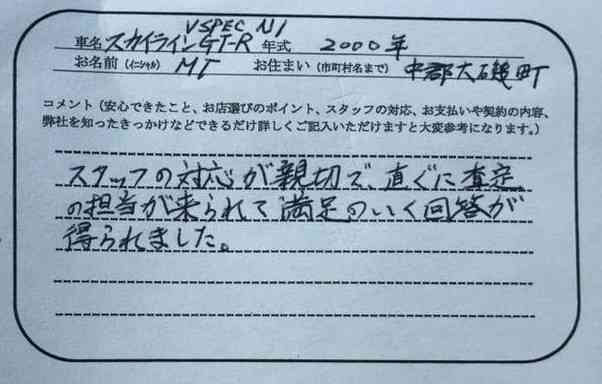 VSPEC N1
車名 スカイラインGT-R 年式 2000年
お名前（イニシャル） MT お住まい（市町村名まで） 中郡大磯町
コメント（安心できたこと、お店選びのポイント、スタッフの対応、お支払いや契約の内容、
弊社を知ったきっかけなどできるだけ詳しくご記入いただけますと大変参考になります。）
スタッフの対応が親切で、直ぐに査定
の担当が来られて満足のいく回答が
得られました。